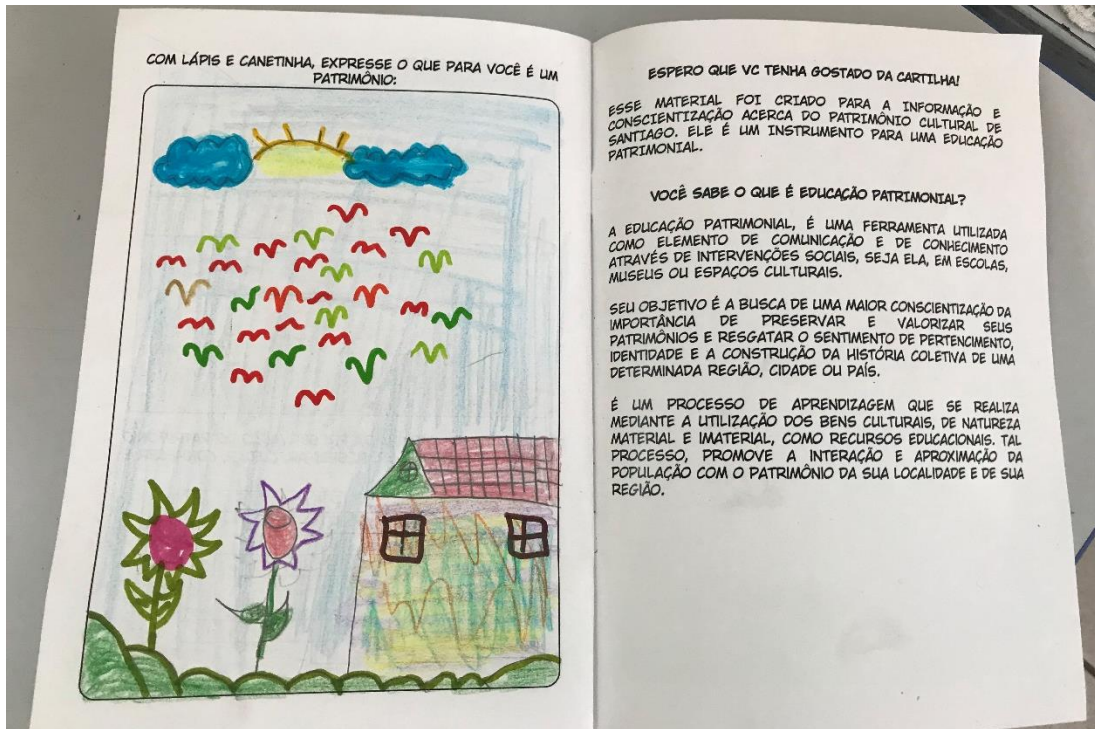 COM LÁPIS E CANETINHA, EXPRESSE O QUE PARA VOCÊ É UM
PATRIMÔNIO:
ESPERO QUE VC TENHA GOSTADO DA CARTILHA!
ESSE MATERIAL FOI CRIADO PARA A INFORMAÇÃO E
CONSCIENTIZAÇÃO ACERCA DO PATRIMÔNIO CULTURAL DE
SANTIAGO. ELE É UM INSTRUMENTO PARA UMA EDUCAÇÃO
PATRIMONIAL.
VOCÊ SABE O QUE É EDUCAÇÃO PATRIMONIAL?
A EDUCAÇÃO PATRIMONIAL, É UMA FERRAMENTA UTILIZADA
COMO ELEMENTO DE COMUNICAÇÃO E DE CONHECIMENTO
ATRAVÉS DE INTERVENÇÕES SOCIAIS, SEJA ELA, EM ESCOLAS,
MUSEUS OU ESPAÇOS CULTURAIS.
SEU OBJETIVO É A BUSCA DE UMA MAIOR CONSCIENTIZAÇÃO DA
IMPORTÂNCIA DE PRESERVAR E VALORIZAR SEUS
PATRIMÔNIOS E RESGATAR O SENTIMENTO DE PERTENCIMENTO,
IDENTIDADE E A CONSTRUÇÃO DA HISTÓRIA COLETIVA DE UMA
DETERMINADA REGIÃO, CIDADE OU PAÍS.
É UM PROCESSO DE APRENDIZAGEM QUE SE REALIZA
MEDIANTE A UTILIZAÇÃO DOS BENS CULTURAIS, DE NATUREZA
MATERIAL E IMATERIAL, COMO RECURSOS EDUCACIONAIS. TAL
PROCESSO, PROMOVE A INTERAÇÃO E APROXIMAÇÃO DA
POPULAÇÃO COM O PATRIMÔNIO DA SUA LOCALIDADE E DE SUA
REGIÃO.